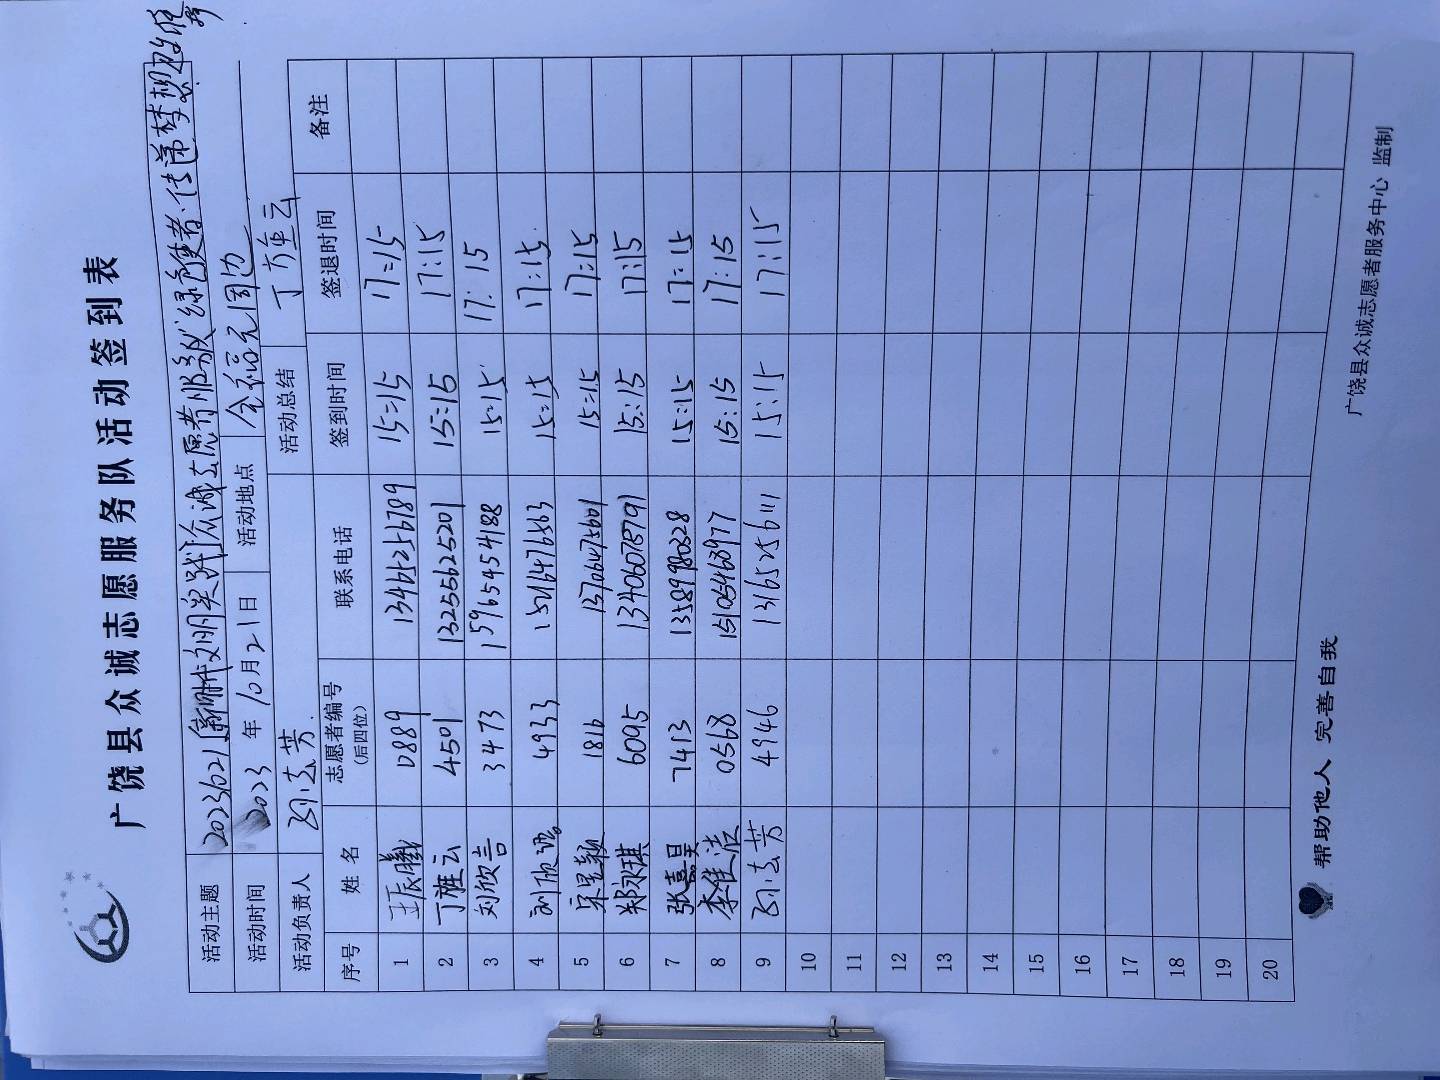 广饶县众诚志愿服务队活动签到表
活动主题 20231021【新时代文明实践】众诚志愿者服务队“绿色使者·传递梦想
活动时间 2023 年 10月21日 活动地点 全福元周边
活动负责人 活动总结 丁雅云
序号 姓名 志愿者编号（后四位） 联系电话 签到时间 签退时间 备注
1 王辰曦 0889 13465256789 15:15 17:15
2 丁雅云 4501 13255625201 15:15 17:15
3 刘欣言 3473 15965454188 15:15 17:15
4 4933 15:15 17:15
5 宋昱颖 1816 13706475601 15:15 17:15
6 郑咏琪 6095 13406078791 15:15 17:15
7 张嘉昊 7413 13589980828 15:15 17:15
8 李佳浩 0568 15105468977 15:15 17:15
9 4946 13165256111 15:15 17:15
10
11
12
13
14
15
16
17
18
19
20
帮助他人 完善自我
广饶县众诚志愿者服务中心 监制